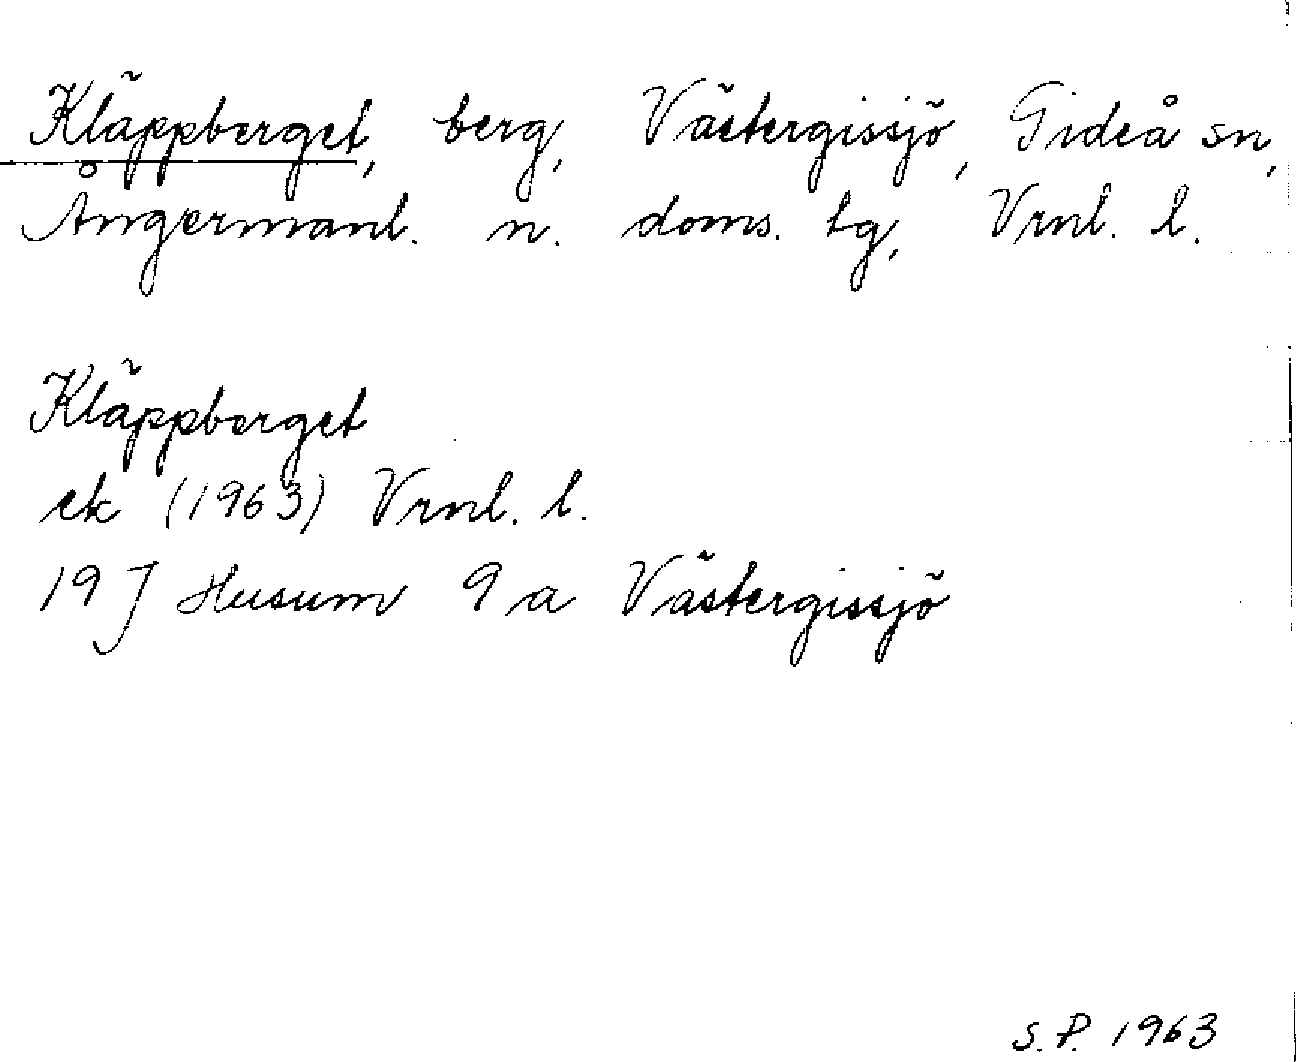 Kläppberget, berg, Västergissjö, Gideå sn,
Ångermanl. n. doms. tg, Vrnl. l.
Kläppberget
ek (1963) Vrnl. l.
19 J Husum 9 a Västergissjö
S.P. 1963